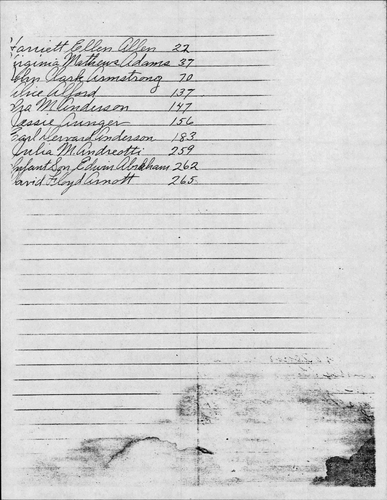 Harriett Ellen Allen 22
Virginia Mathews Adams 37
John Clark Armstrong 70
Alice Alford 137
Ira M. Anderson 147
Jessie Aringer 156
Earl Dervard Anderson 183
Julia M. Andreotti 259
Infant Son, Edwin Abraham 262
David Floyd Arnott 265